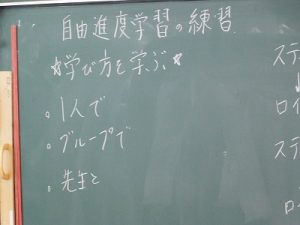 自由進度学習の練習
☆学び方を学ぶ!☆
。1人で
。グループで
。先生と
ステ
ロイ
ステ
ロイ